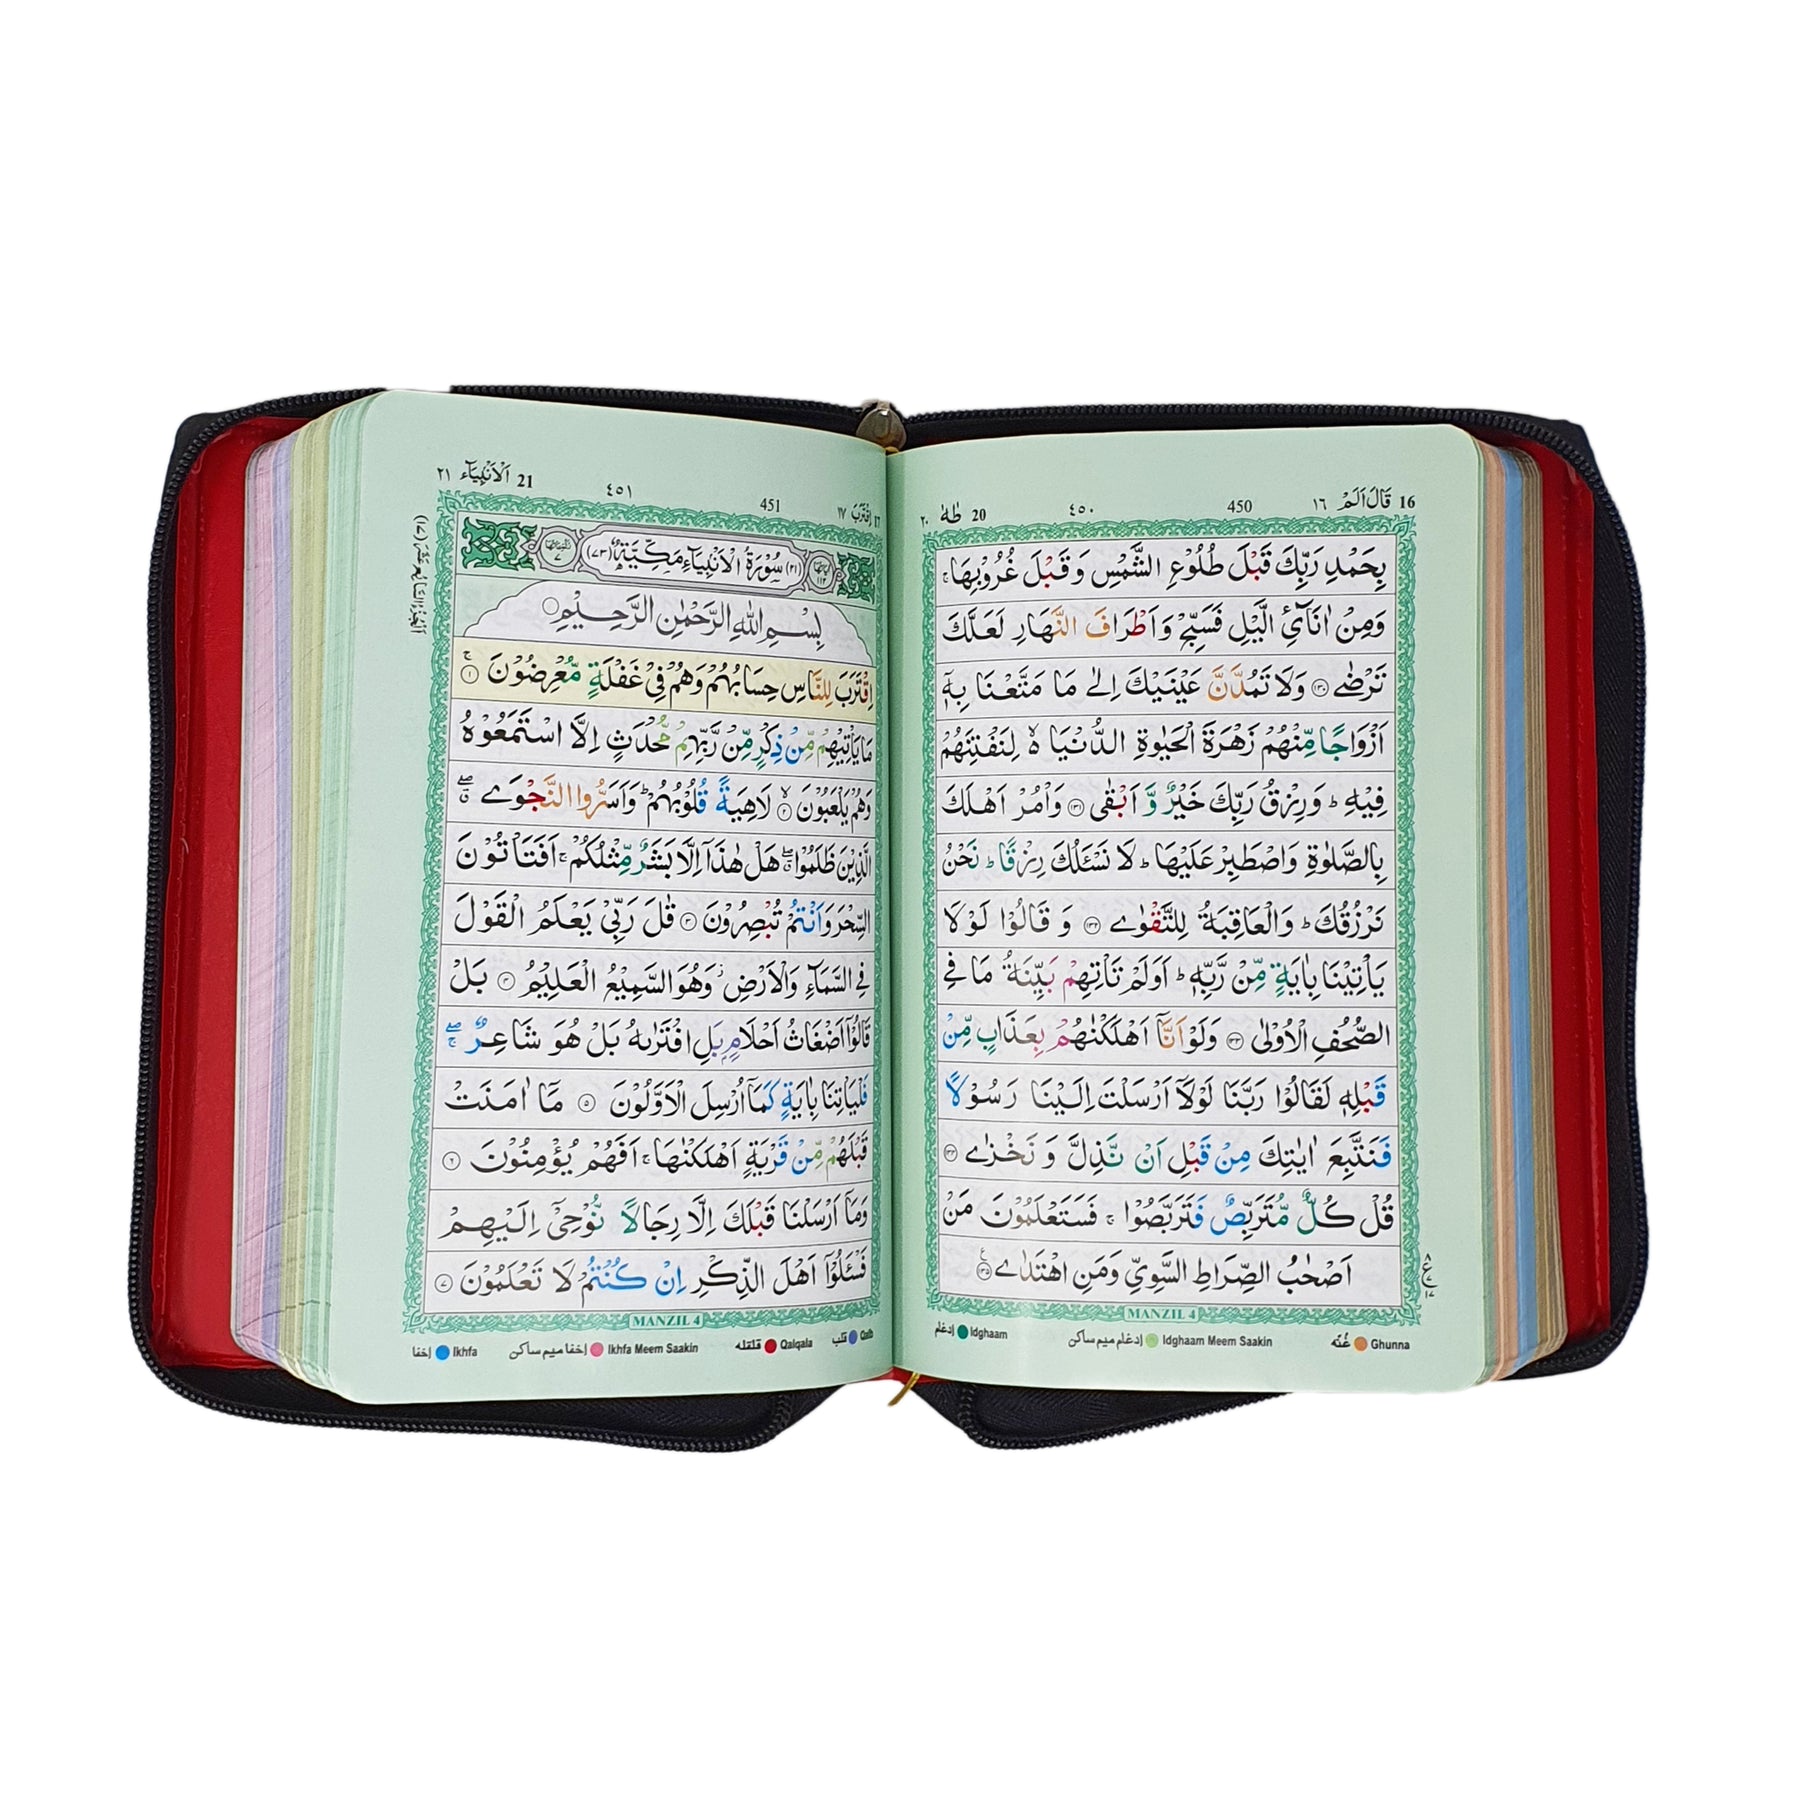 16 قَالَ اَلَمْ ١٦
450
٤٥٠
20 طٰهٰ ٢٠
بِحَمْدِ رَبِّكَ قَبْلَ طُلُوْعِ الشَّمْسِ وَ قَبْلَ غُرُوْبِهَا ۚ
وَمِنْ اٰنَآئِ الَّيْلِ فَسَبِّحْ وَ اَطْرَافَ النَّهَارِ لَعَلَّكَ
تَرْضٰى ﴿١٣٠﴾ وَلَا تَمُدَّنَّ عَيْنَيْكَ اِلٰى مَا مَتَّعْنَا بِهٖٓ
اَزْوَاجًا مِّنْهُمْ زَهْرَةَ الْحَيٰوةِ الدُّنْيَا ۙ لِنَفْتِنَهُمْ
فِيْهِ ؕ وَ رِزْقُ رَبِّكَ خَيْرٌ وَّ اَبْقٰى ﴿١٣١﴾ وَاْمُرْ اَهْلَكَ
بِالصَّلٰوةِ وَاصْطَبِرْ عَلَيْهَا ؕ لَا نَسْئَلُكَ رِزْقًا ؕ نَحْنُ
نَرْزُقُكَ ؕ وَالْعَاقِبَةُ لِلتَّقْوٰى ﴿١٣٢﴾ وَ قَالُوْا لَوْ لَا
يَاْتِيْنَا بِاٰيَةٍ مِّنْ رَّبِّهٖ ؕ اَوَلَمْ تَاْتِهِمْ بَيِّنَةُ مَا فِى
الصُّحُفِ الْاُوْلٰى ﴿١٣٣﴾ وَلَوْ اَنَّآ اَهْلَكْنٰهُمْ بِعَذَابٍ مِّنْ
قَبْلِهٖ لَقَالُوْا رَبَّنَا لَوْ لَآ اَرْسَلْتَ اِلَيْنَا رَسُوْلًا
فَنَتَّبِعَ اٰيٰتِكَ مِنْ قَبْلِ اَنْ نَّذِلَّ وَ نَخْزٰى ﴿١٣٤﴾
قُلْ كُلٌّ مُّتَرَبِّصٌ فَتَرَبَّصُوْا ۚ فَسَتَعْلَمُوْنَ مَنْ
اَصْحٰبُ الصِّرَاطِ السَّوِيِّ وَمَنِ اهْتَدٰى ﴿١٣٥﴾
MANZIL 4
Ghunna غُنّه
Idghaam Meem Saakin ادغام ميم ساكن
Idghaam ادغام
اِقْتَرَبَ ١٧
451
٤٥١
21 اَلْاَنْۢبِيَآء ٢١
سُوْرَةُ الْاَنْۢبِيَآءِ مَكِّيَّةٌ (٧٣) (٢١)
بِسْمِ اللّٰهِ الرَّحْمٰنِ الرَّحِيْمِ
اِقْتَرَبَ لِلنَّاسِ حِسَابُهُمْ وَهُمْ فِيْ غَفْلَةٍ مُّعْرِضُوْنَ ۚ ﴿١﴾
مَا يَاْتِيْهِمْ مِّنْ ذِكْرٍ مِّنْ رَّبِّهِمْ مُّحْدَثٍ اِلَّا اسْتَمَعُوْهُ
وَهُمْ يَلْعَبُوْنَ ۙ ﴿٢﴾ لَاهِيَةً قُلُوْبُهُمْ ؕ وَاَسَرُّوا النَّجْوَى
الَّذِيْنَ ظَلَمُوْا هَلْ هٰذَآ اِلَّا بَشَرٌ مِّثْلُكُمْ ۚ اَفَتَاْتُوْنَ
السِّحْرَ وَاَنْتُمْ تُبْصِرُوْنَ ﴿٣﴾ قٰلَ رَبِّيْ يَعْلَمُ الْقَوْلَ
فِى السَّمَآءِ وَالْاَرْضِ ز وَهُوَ السَّمِيْعُ الْعَلِيْمُ ﴿٤﴾ بَلْ
قَالُوْٓا اَضْغَاثُ اَحْلَامٍۭ بَلِ افْتَرٰىهُ بَلْ هُوَ شَاعِرٌ
فَلْيَاْتِنَا بِاٰيَةٍ كَمَآ اُرْسِلَ الْاَوَّلُوْنَ ﴿٥﴾ مَآ اٰمَنَتْ
قَبْلَهُمْ مِّنْ قَرْيَةٍ اَهْلَكْنٰهَا ۚ اَفَهُمْ يُؤْمِنُوْنَ ﴿٦﴾
وَمَآ اَرْسَلْنَا قَبْلَكَ اِلَّا رِجَالًا نُّوْحِيْٓ اِلَيْهِمْ
فَسْئَلُوْٓا اَهْلَ الذِّكْرِ اِنْ كُنْتُمْ لَا تَعْلَمُوْنَ ﴿٧﴾
MANZIL 4
Qalb قلب
Qalqala قلقله
Ikhfa Meem Saakin اخفا ميم ساكن
Ikhfa اخفا